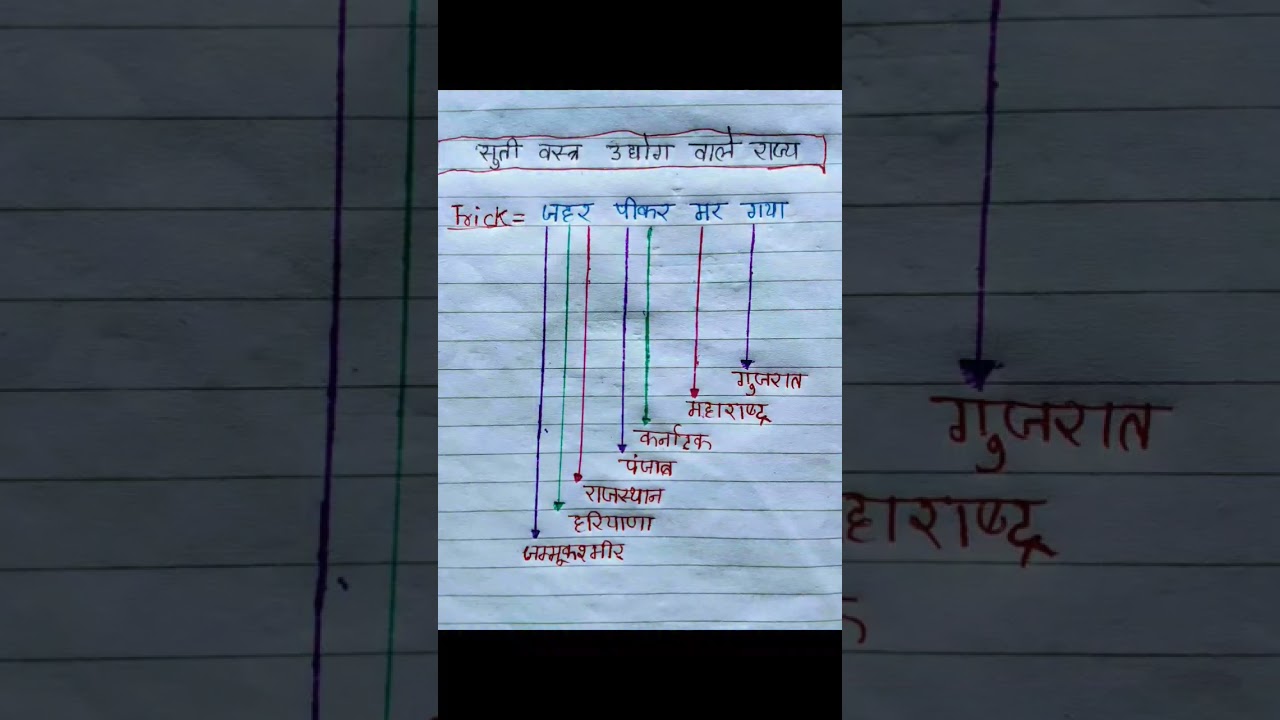 सुती वस्त्र उद्योग वाले राज्य
Trick = जहर पीकर मर गया
गुजरात
महाराष्ट्र
कर्नाटक
पंजाब
राजस्थान
हरियाणा
जम्मूकश्मीर
गुजरात
हाराष्ट्र